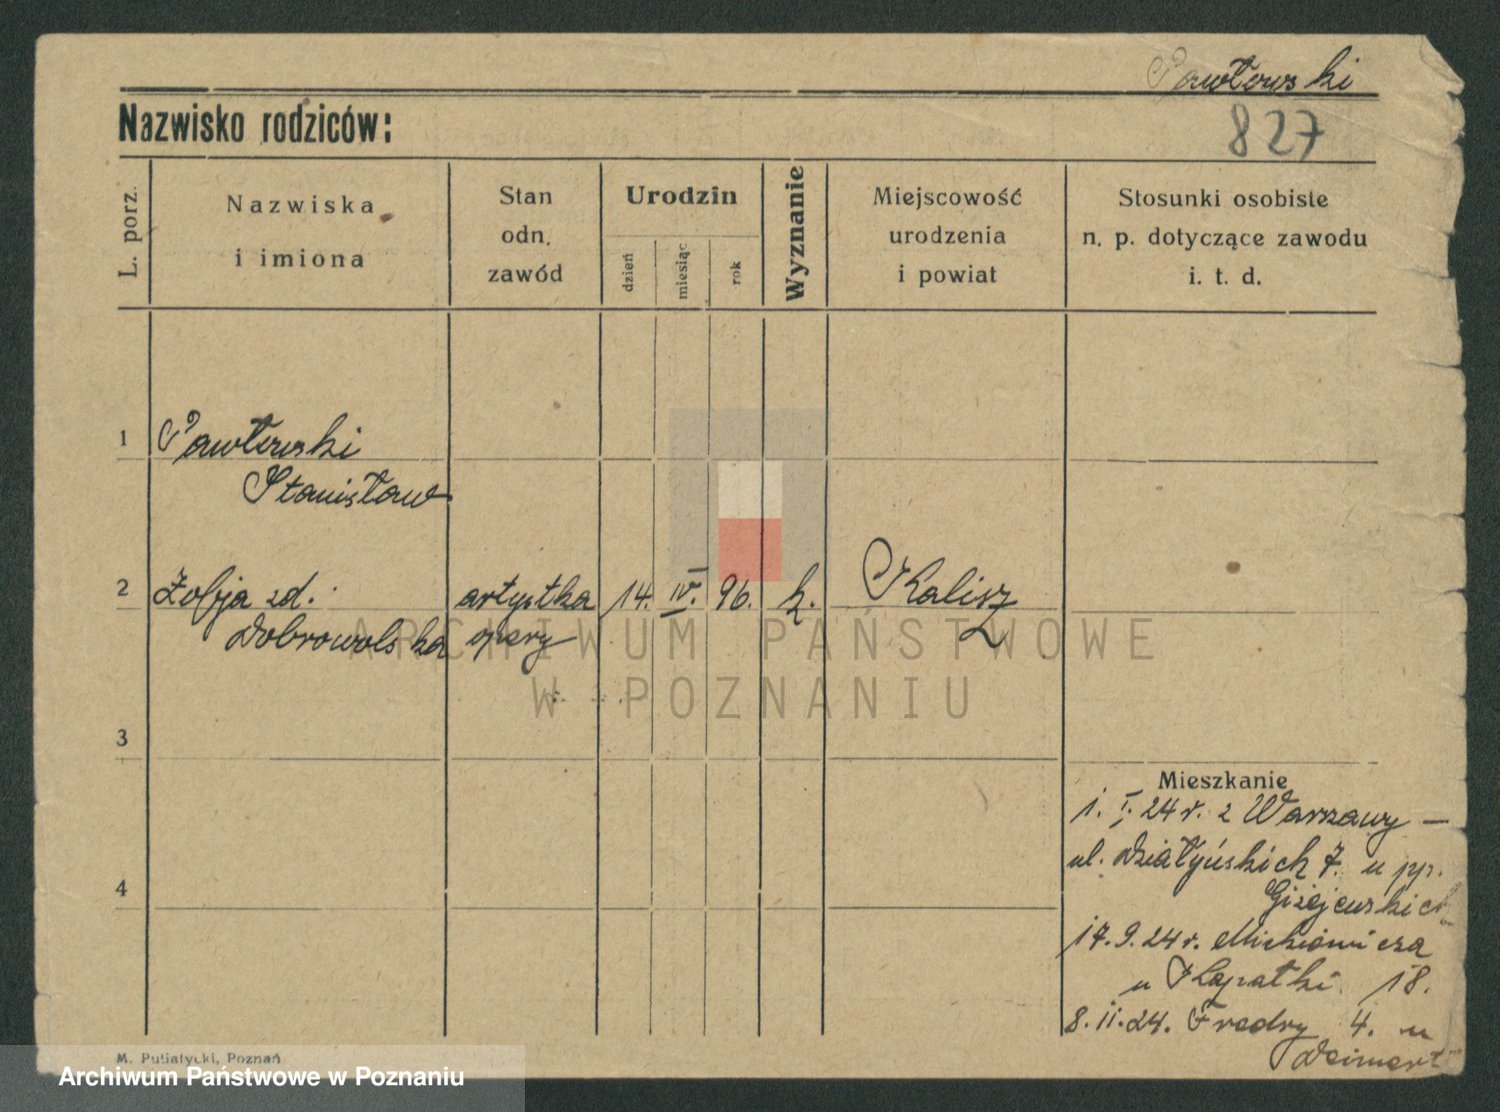 Pawłowski
Nazwisko rodziców:
827
L. porz.
Nazwiska
i imiona
Stan
odn.
zawód
Urodzin
dzień
miesiąc
rok
Wyznanie
Miejscowość
urodzenia
i powiat
Stosunki osobiste
n. p. dotyczące zawodu
i. t. d.
1
Pawłowski
Stanisław
2
Zofja zd.
Dobrowolska
artystka
opery
14.
IV.
96.
k.
Kalisz
ARCHIWUM PAŃSTWOWE
W POZNANIU
3
4
Mieszkanie
1. I. 24 r. z Warszawy —
ul. Działyńskich 7. u pp.
Giżejewskich
17. 9. 24 r. Mickiewicza
u 18.
8. 11. 24. Fredry 4. u
M. Putiatycki, Poznań
Archiwum Państwowe w Poznaniu